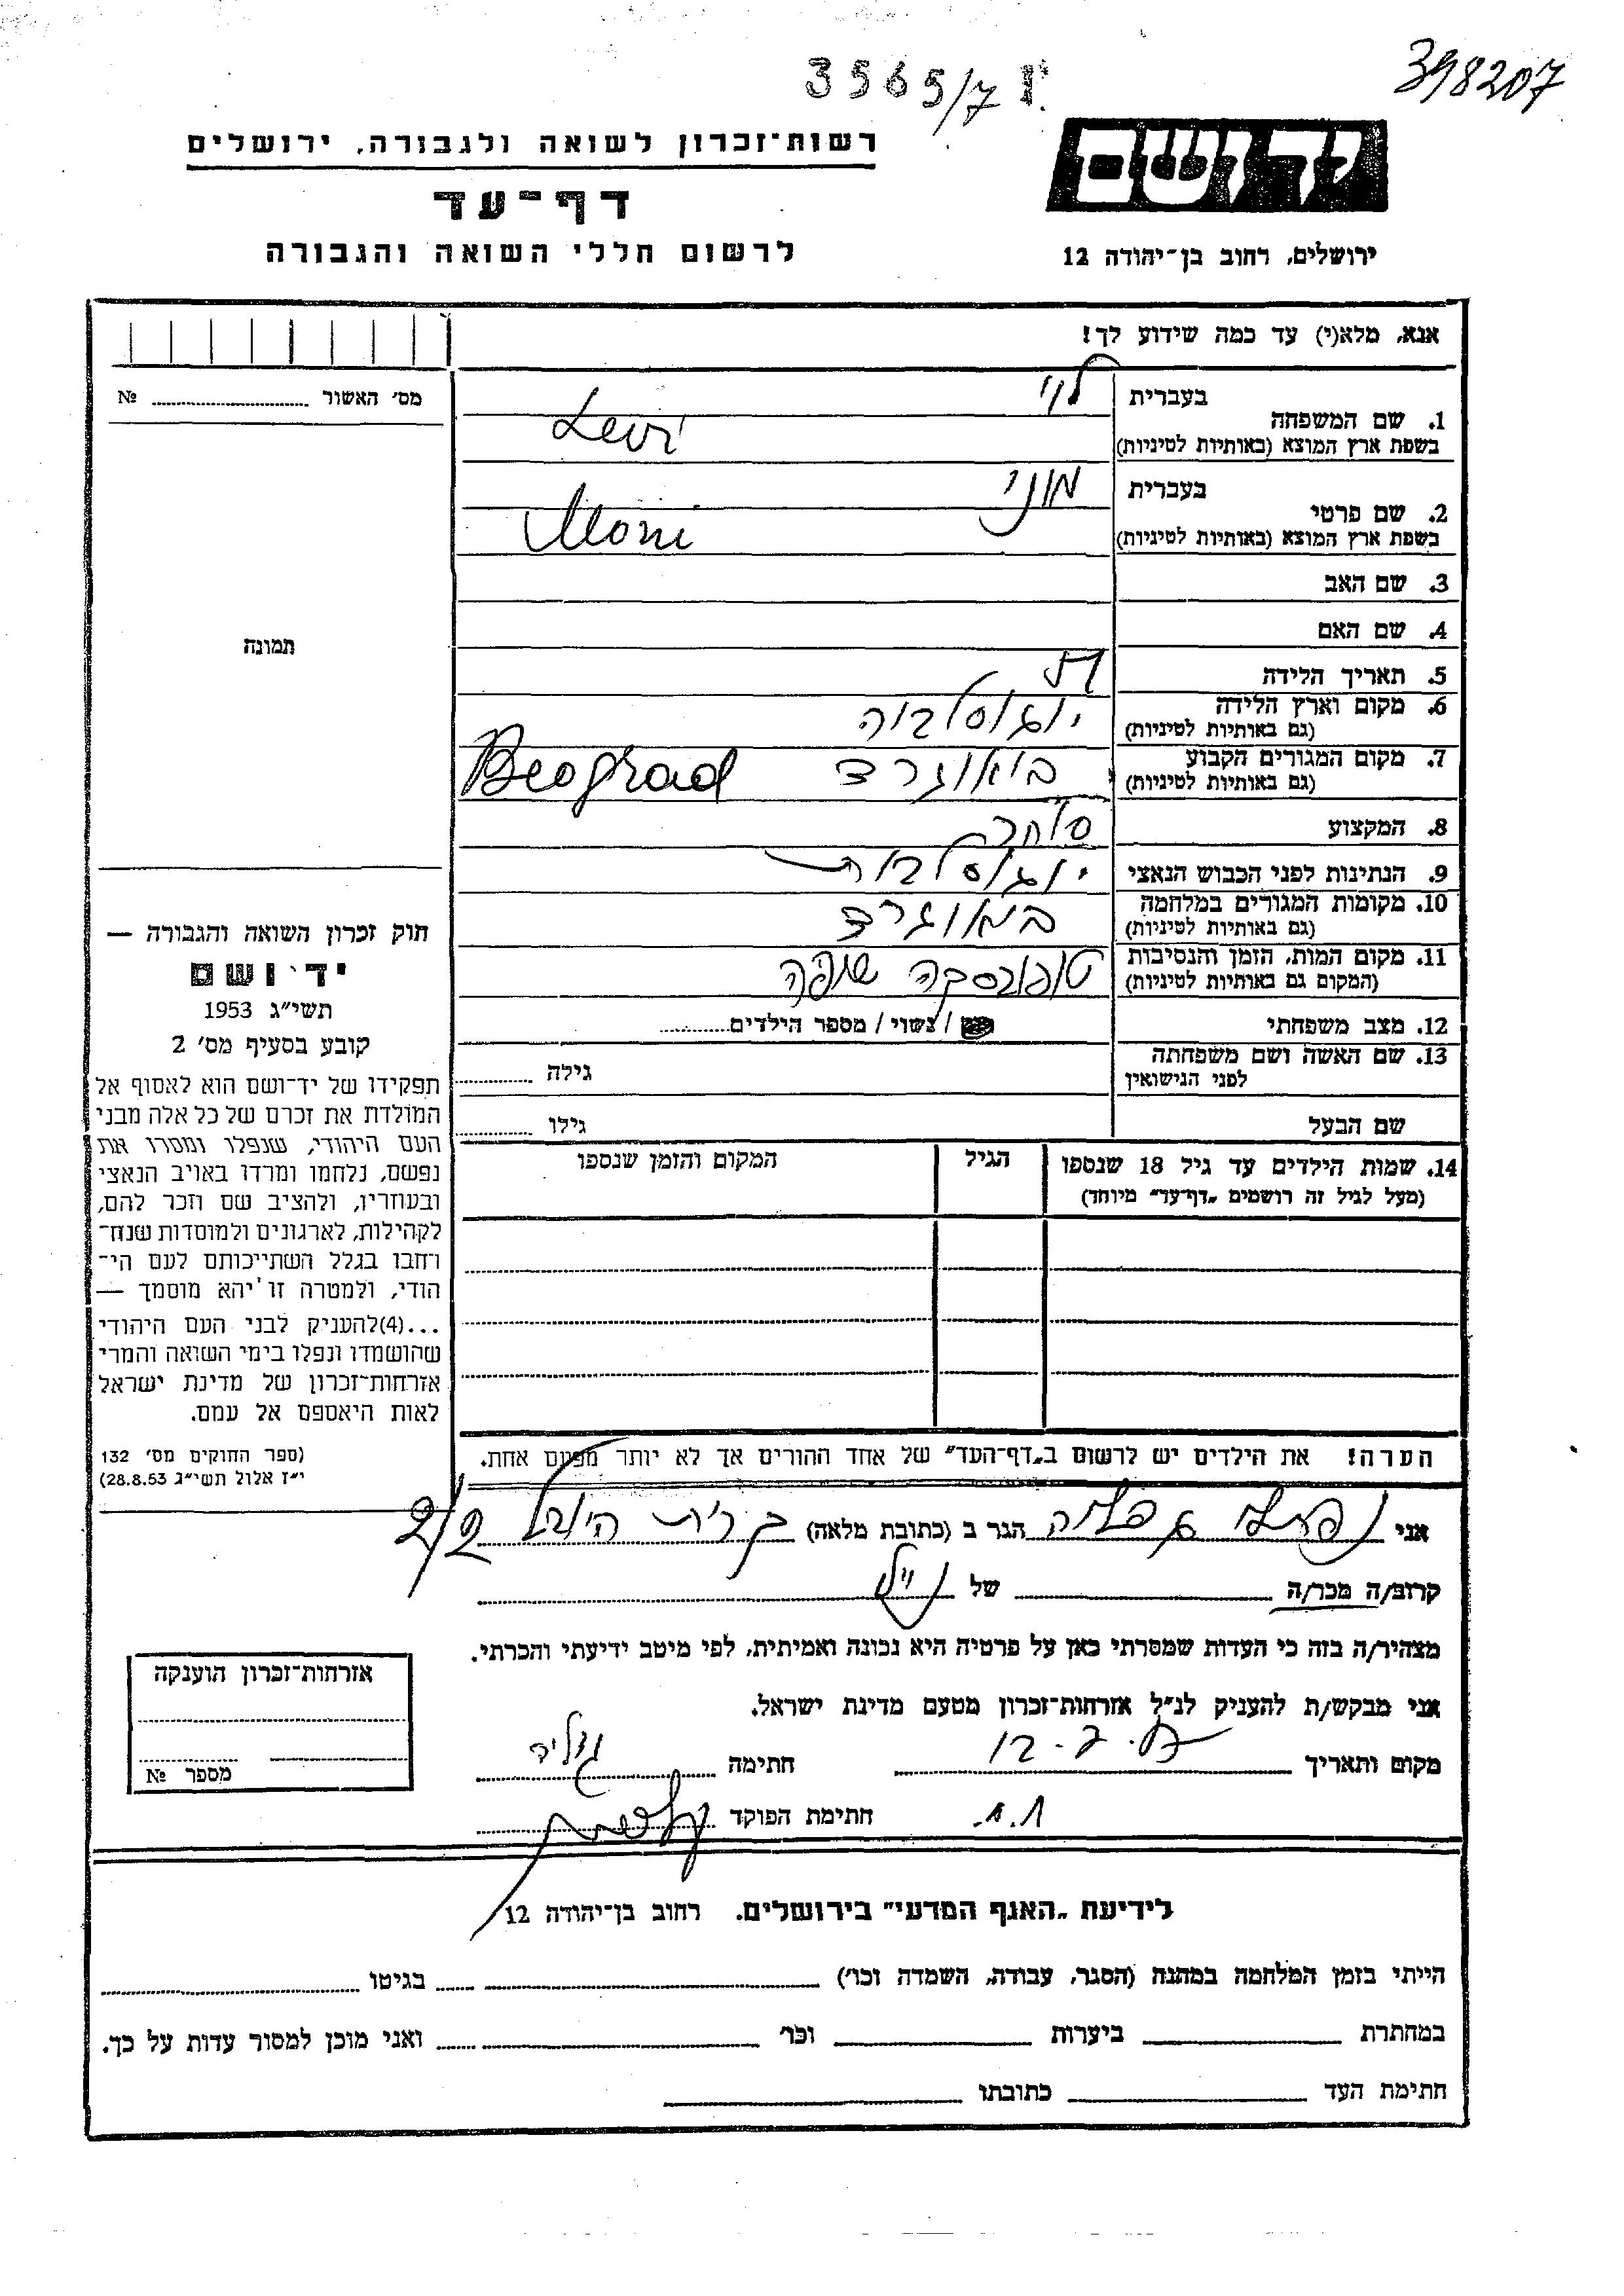 3565/7
398207
יד ושם
רשות־זכרון לשואה ולגבורה, ירושלים
דף־עד
לרשום חללי השואה והגבורה
ירושלים, רחוב בן־יהודה 12
אנא, מלא(י) עד כמה שידוע לך!
מס׳ האשור №
1. שם המשפחה
בעברית לוי
בשפת ארץ המוצא (באותיות לטיניות) Levi
2. שם פרטי
בעברית מוני
בשפת ארץ המוצא (באותיות לטיניות) Moni
3. שם האב
4. שם האם
5. תאריך הלידה
6. מקום וארץ הלידה יוגוסלביה
(גם באותיות לטיניות)
7. מקום המגורים הקבוע באוגרד Beograd
(גם באותיות לטיניות)
8. המקצוע סוחר
9. הנתינות לפני הכבוש הנאצי
10. מקומות המגורים במלחמה באוגרד
(גם באותיות לטיניות)
11. מקום המות, הזמן והנסיבות טופובסקה שופה
(המקום גם באותיות לטיניות)
12. מצב משפחתי / נשוי / מספר הילדים
13. שם האשה ושם משפחתה
לפני הנישואין גילה
שם הבעל גילו
14. שמות הילדים עד גיל 18 שנספו הגיל המקום והזמן שנספו
(מעל לגיל זה רושמים „דף־עד״ מיוחד)
הערה! את הילדים יש לרשום ב„דף־העד״ של אחד ההורים אך לא יותר מפעם אחת.
תמונה
חוק זכרון השואה והגבורה —
יד ושם
תשי״ג 1953
קובע בסעיף מס׳ 2
תפקידו של יד־ושם הוא לאסוף אל
המולדת את זכרם של כל אלה מבני
העם היהודי, שנפלו ומסרו את
נפשם, נלחמו ומרדו באויב הנאצי
ובעוזריו, ולהציב שם וזכר להם,
לקהילות, לארגונים ולמוסדות שנח־
רחבו בגלל השתייכותם לעם הי־
הודי, ולמטרה זו יהא מוסמך —
...(4)להעניק לבני העם היהודי
שהושמדו ונפלו בימי השואה והמרי
אזרחות־זכרון של מדינת ישראל
לאות היאספם אל עמם.
(ספר החוקים מס׳ 132
י״ז אלול תשי״ג 28.8.53)
אני הגר ב (כתובת מלאה) קרית היובל
קרוב/ה מכר/ה של
מצהיר/ה בזה כי העדות שמסרתי כאן על פרטיה היא נכונה ואמיתית, לפי מיטב ידיעתי והכרתי.
אני מבקש/ת להעניק לנ״ל אזרחות־זכרון מטעם מדינת ישראל.
מקום ותאריך חתימה
חתימת הפוקד
אזרחות־זכרון הוענקה
מספר №
לידיעת „האגף המדעי״ בירושלים, רחוב בן־יהודה 12
הייתי בזמן המלחמה במחנה (הסגר, עבודה, השמדה וכו׳) בגיטו
במחתרת ביערות וכו׳ ואני מוכן למסור עדות על כך.
חתימת העד כתובתו